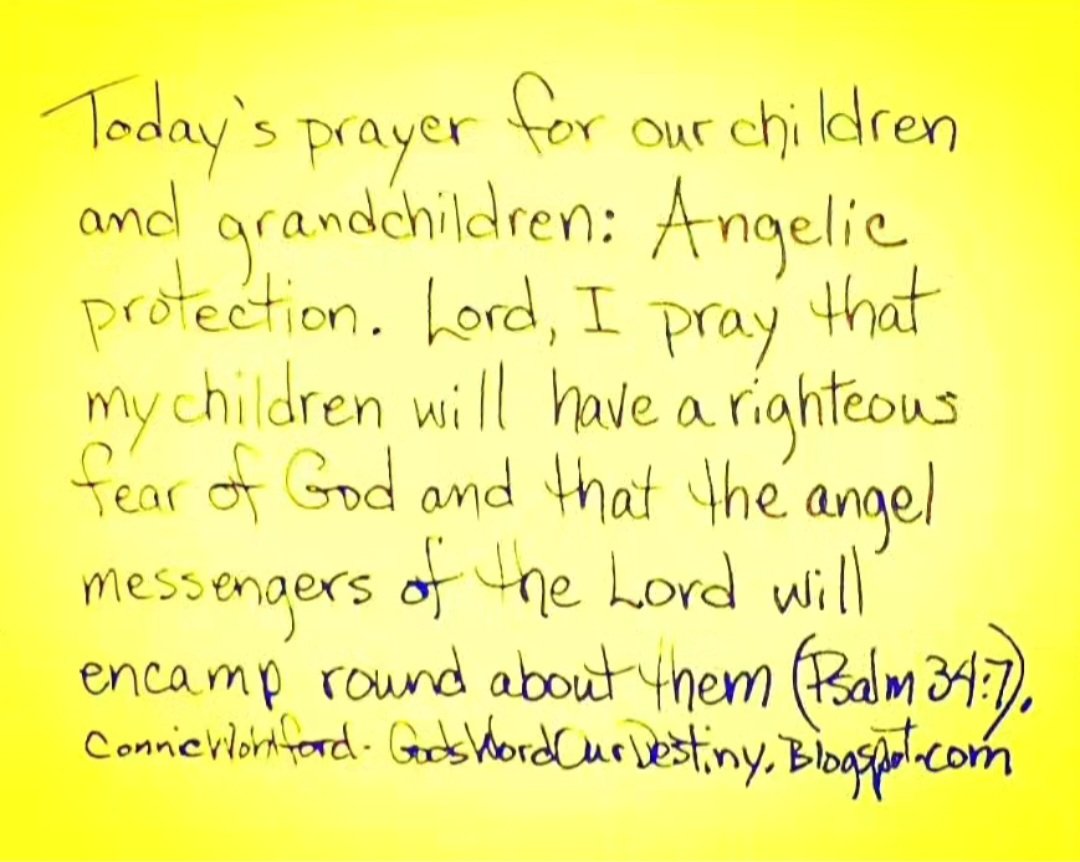 Today's prayer for our children
and grandchildren: Angelic
protection. Lord, I pray that
my children will have a righteous
fear of God and that the angel
messengers of the Lord will
encamp round about them (Psalm 34:7).
Connie - GodsWordOurDestiny.Blogspot.com